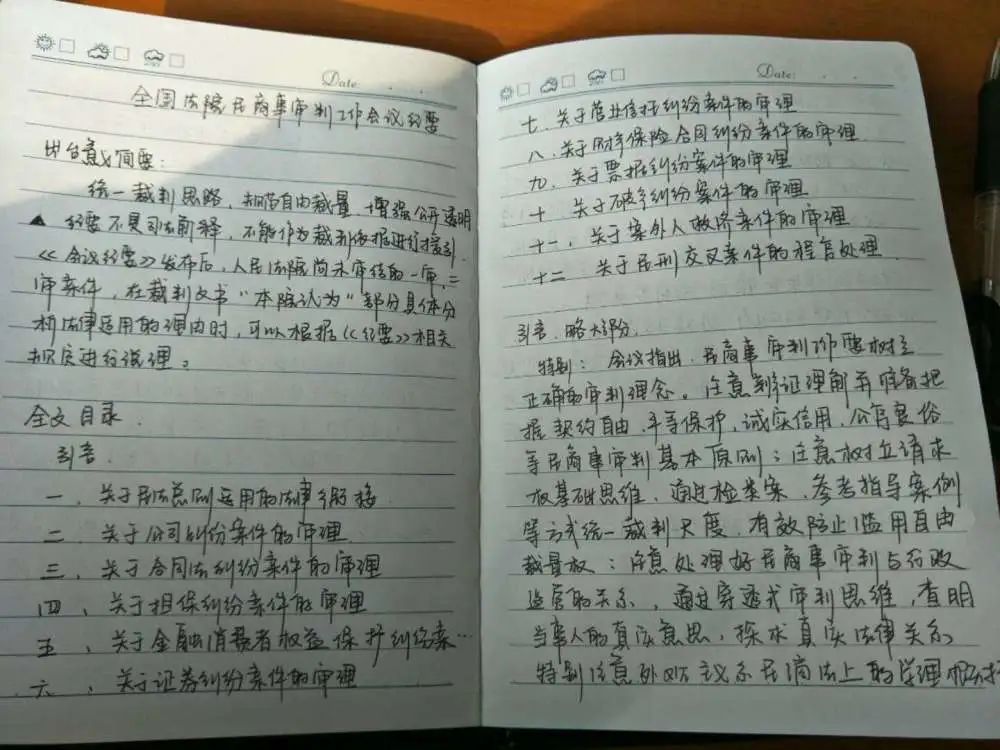 Date:
全国法院民商事审判工作会议纪要
出台意义简要:
统一裁判思路,规范自由裁量,增强公开透明
▲ 纪要不是司法解释,不能作为裁判依据进行援引.
《会议纪要》发布后,人民法院尚未审结的一审、二
审案件,在裁判文书“本院认为”部分具体分
析法律适用的理由时,可以根据《纪要》相关
规定进行说理。
全文目录.
引言.
一、关于民法总则适用的法律衔接
二、关于公司纠纷案件的审理
三、关于合同法纠纷案件的审理
四、关于担保纠纷案件的审理
五、关于金融消费者权益保护纠纷案…
六、关于证券纠纷案件的审理
Date:
七、关于营业信托纠纷案件的审理
八、关于财产保险合同纠纷案件的审理
九、关于票据纠纷案件的审理
十、关于破产纠纷案件的审理
十一、关于案外人救济案件的审理
十二 关于民刑交叉案件的程序处理.
引言.略大部分.
特别:会议指出.民商事审判工作要树立
正确的审判理念。注意辩证理解并准备把
握契约自由、平等保护,诚实信用,公序良俗
等民商事审判基本原则;注意树立请求
权基础思维,通过检类案、参考指导案例
等方式统一裁判尺度,有效防止滥用自由
裁量权;注意处理好民商事审判与行政
监管的关系,通过穿透式审判思维,查明
当事人的真实意思,探求真实法律关系
特别注意外观主义系民商法上的学理